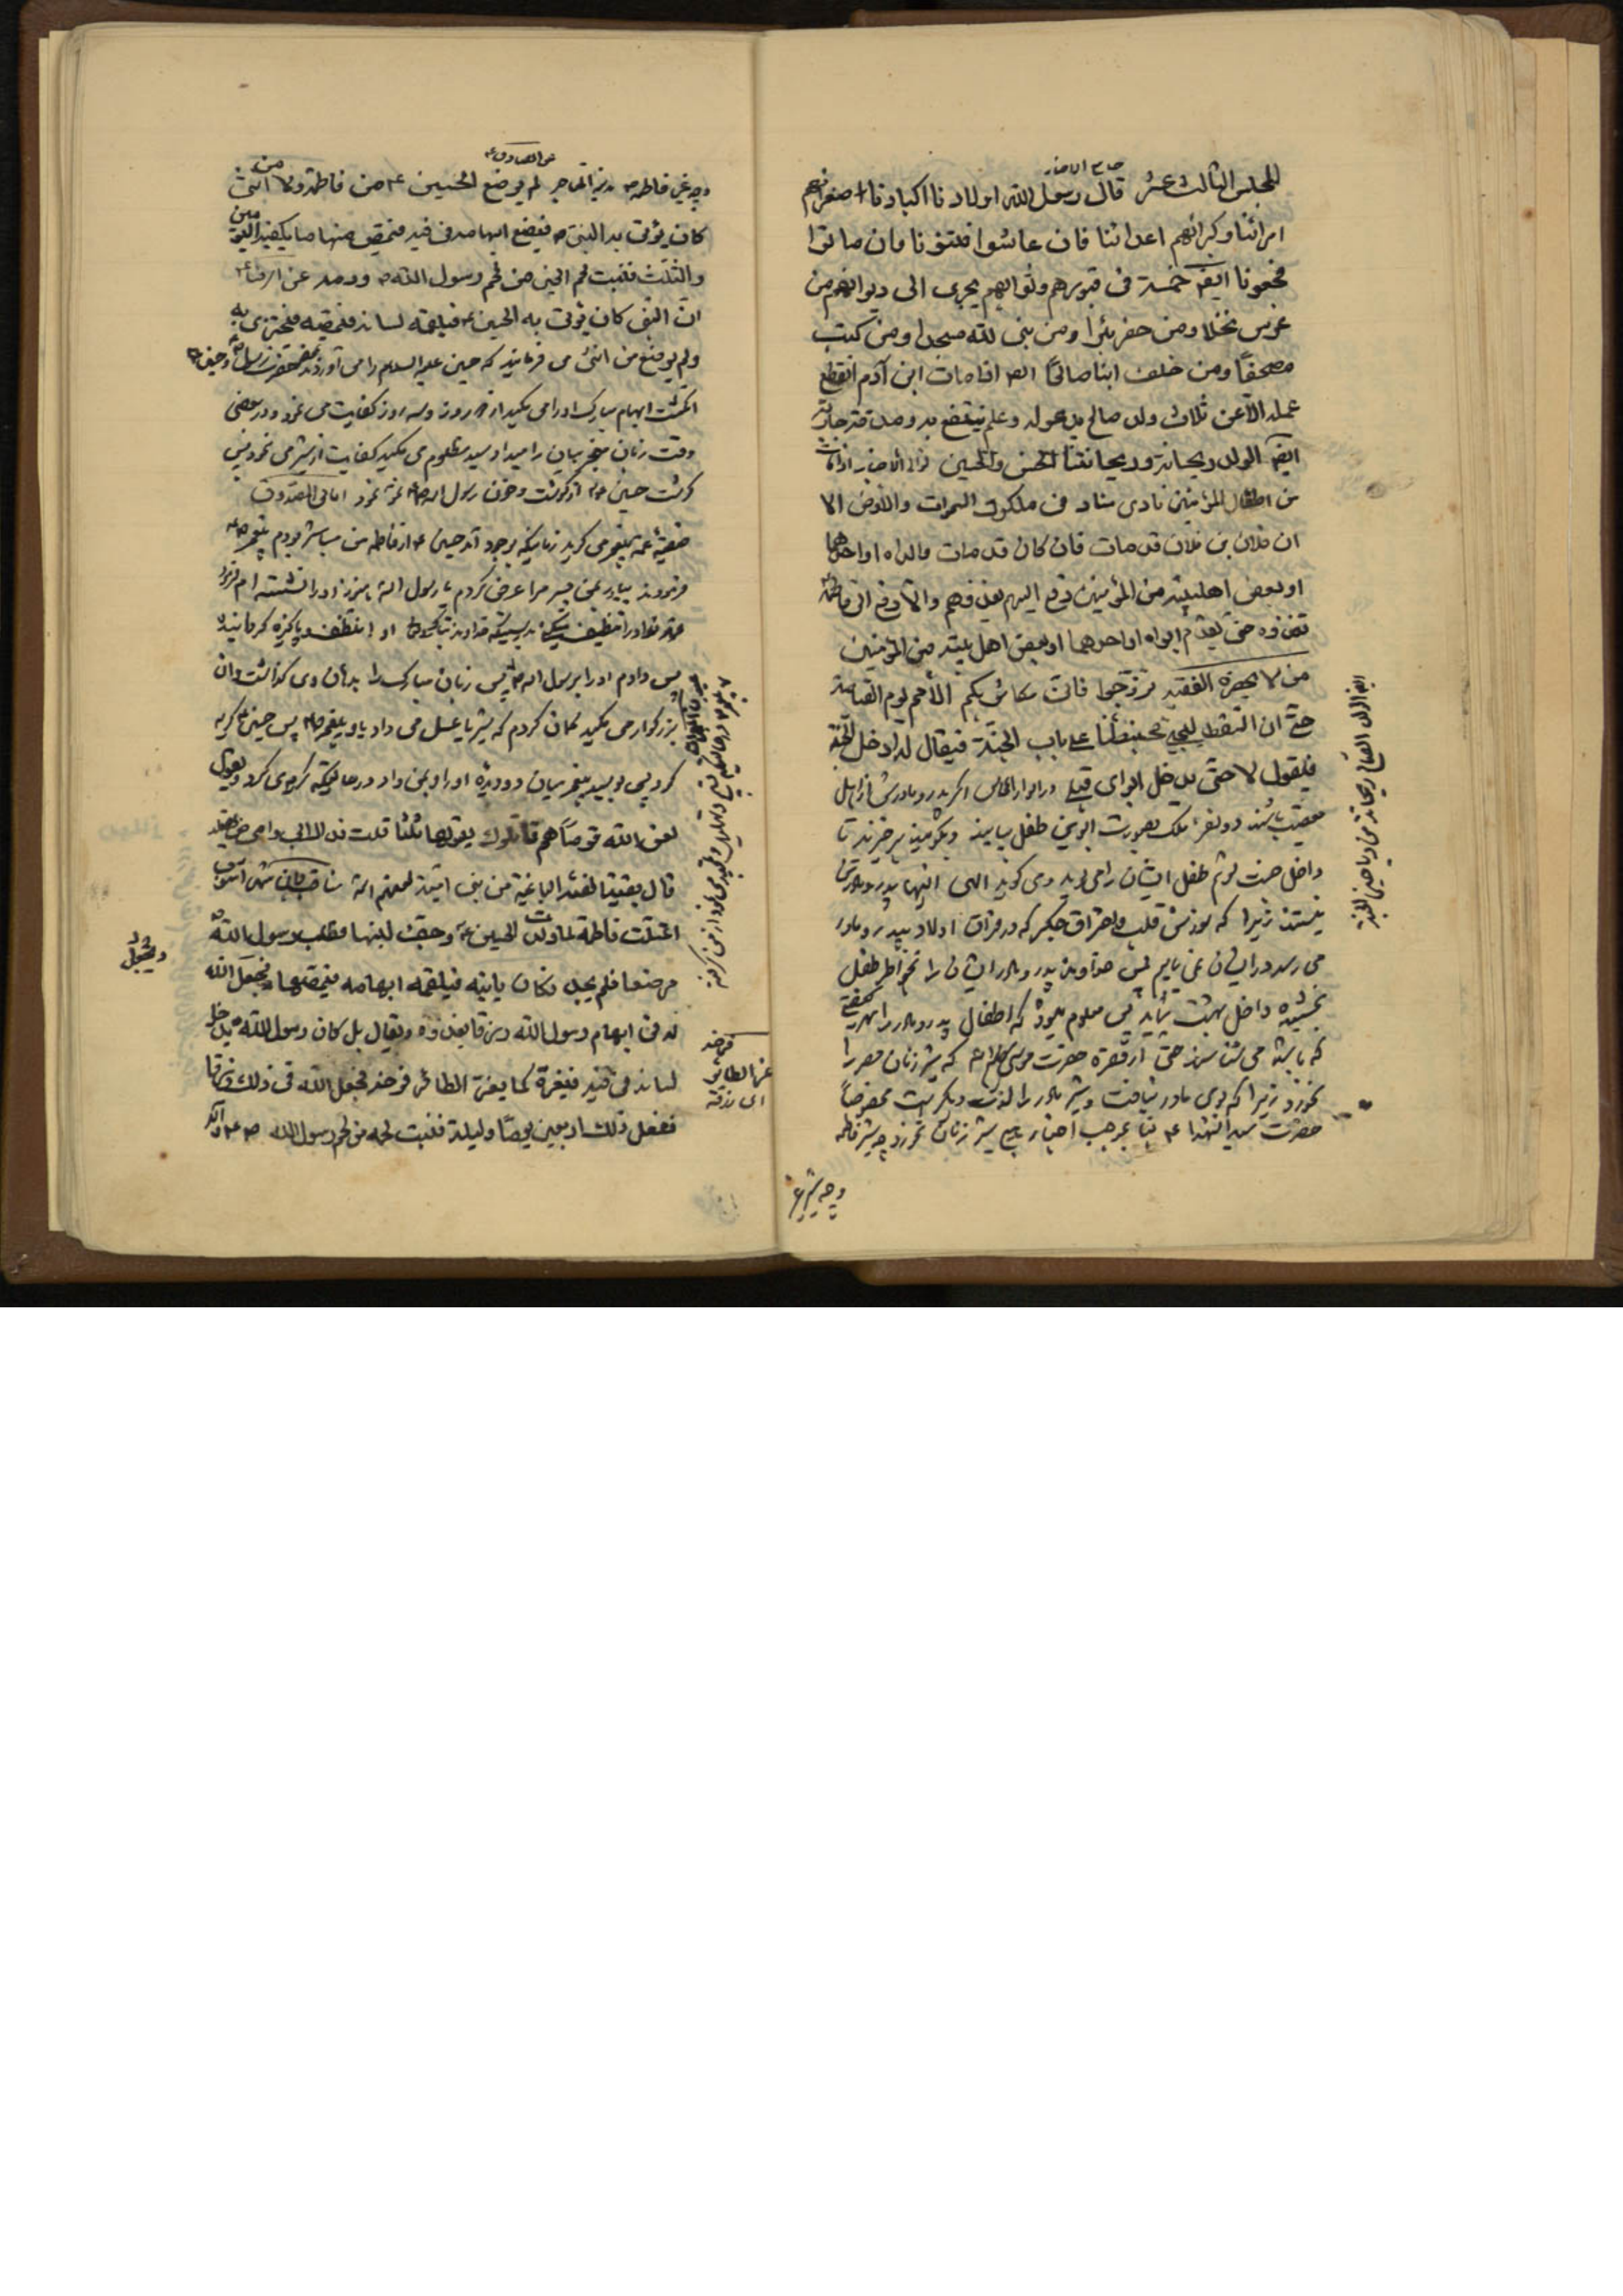 جامع الاخبار
المجلس الثالث عشر قال رسول الله اولادنا اكبادنا اصغرهم
امرائنا وكبرائهم اعدائنا فان عاشوا فتنونا وان ماتوا
فجعونا ايضا خمسة فى قبورهم وثوابهم يجرى الى ديوانهم من
غرس نخلا ومن حفر بئرا ومن بنى لله مسجدا ومن كتب
مصحفا ومن خلف ابنا صالحا ايضا اذا مات ابن آدم انقطع
عمله الا عن ثلاث ولد صالح يدعو له وعلم ينتفع به وصدقة جارية
ايضا الولد ريحانة وريحانتنا الحسن والحسين اذا مات
من اطفال المؤمنين نادى مناد فى ملكوت السموات والارض الا
ان فلان بن فلان قد مات فان كان قد مات والداه او احدهما
او بعض اهلبيته من المؤمنين دفع اليهم يغذونهم والا دفع الى فاطمة
تغذوه حتى يقدم ابواه او احدهما او بعض اهل بيته من المؤمنين
من لا يحضره الفقيه تزوجوا فانى مكاثر بكم الامم يوم القيامة
حتى ان السقط ليجىء محبنطئا على باب الجنة فيقال له ادخل الجنة
فيقول لا حتى يدخل ابواى قبلى در انوار المجالس اگر پدر و مادرش از اهل
باشند دو نفر ملك بصورت ابوين طفل بيايند وبگويند برخيزند تا
داخل جنت شويم طفل ايشان را مى بويد و مى گويد الهى اينها پدر و مادر من
نيستند زيرا كه سوزش قلب و احتراق جگر كه در فراق اولاد بپدر و مادر
مى رسد در ايشان نمى يابم پس خداوند پدر و مادر ايشان را بخواطر طفل
بخشيده داخل بهشت نمايد پس معلوم ميشود كه اطفال پدر و مادر را بهر
كه باشند مى شناسند حتى از حضرت موسى كه شير زنان مصر را
نخورد زيرا كه بوى مادر نيافت و شير مادر را لذت ديگر است مخصوصا
حضرت سيد الشهداء بموجب اخبار شير زنان نخورد چه شير فاطمه
ايضا الولد الصالح ريحانة من رياحين الجنة
وچه شير
عن الصادق
وچه غير فاطمه لم يرضع الحسين من فاطمة ولا من انثى
كان يؤتى به النبى فيضع ابهامه فى فيه فيمص منها ما يكفيه اليومين
والثلث فنبت لحم الحسين من لحم رسول الله ودمه عن الرضا
ان النبى كان يؤتى به الحسين فيلقمه لسانه فيمصه فيجتزى به
ولم يرضع من انثى مى فرمايند كه حسين عليه السلام را مى آوردند
انگشت ابهام مبارك او را مى مكيد از دو روز و سه روز كفايت مى نمود و در بعضى
وقت زبان معجز بيان را ميداد سيد مظلوم مى مكيد كفايت از شير مى نمود پس
گوشت حسين از گوشت و خون رسول الله نمو نمود امالى الصدوق
صفيه عمه پيغمبر مى گويد زمانيكه بوجود آمد حسين از فاطمه من مباشر بودم پيغمبر
فرمودند بياور بمن پسر مرا عرض كردم يا رسول الله هنوز او را نشسته ام فرمود
عمه تو او را تنظيف ميكنى بدرستيكه خداوند تبارك و تعالى او را تنظيف و پاكيزه گردانيده
پس دادم او را برسول الله پس زبان مبارك را بدهان وى گذاشت و آن
بزرگوار مى مكيد گمان كردم كه شير يا عسل مى داد باو پيغمبر پس حسين گريه
كرد پس بوسيد پيغمبر ميان دو ديده او را و بمن داد در حاليكه گريه مى كرد ويقول
لعن الله قوما هم قاتلوك يقولها ثلثا قلت فداك ابى وامى من يقتله
قال بقية الفئة الباغية من بنى امية لعنهم الله مناقب ابن شهر آشوب
اعتلت فاطمة لما ولدت الحسين وجف لبنها فطلب رسول الله
مرضعا فلم يجد فكان ياتيه فيلقمه ابهامه فيمصها ويجعل الله
له فى ابهام رسول الله رزقا يغذوه ويقال بل كان رسول الله يدخل
لسانه فى فيه فيغره كما يغر الطائر فرخه فجعل الله فى ذلك رزقا
ففعل ذلك اربعين يوما وليلة فنبت لحمه من لحم رسول الله
ويجعل
فرخه
غر الطائر
اى زقه